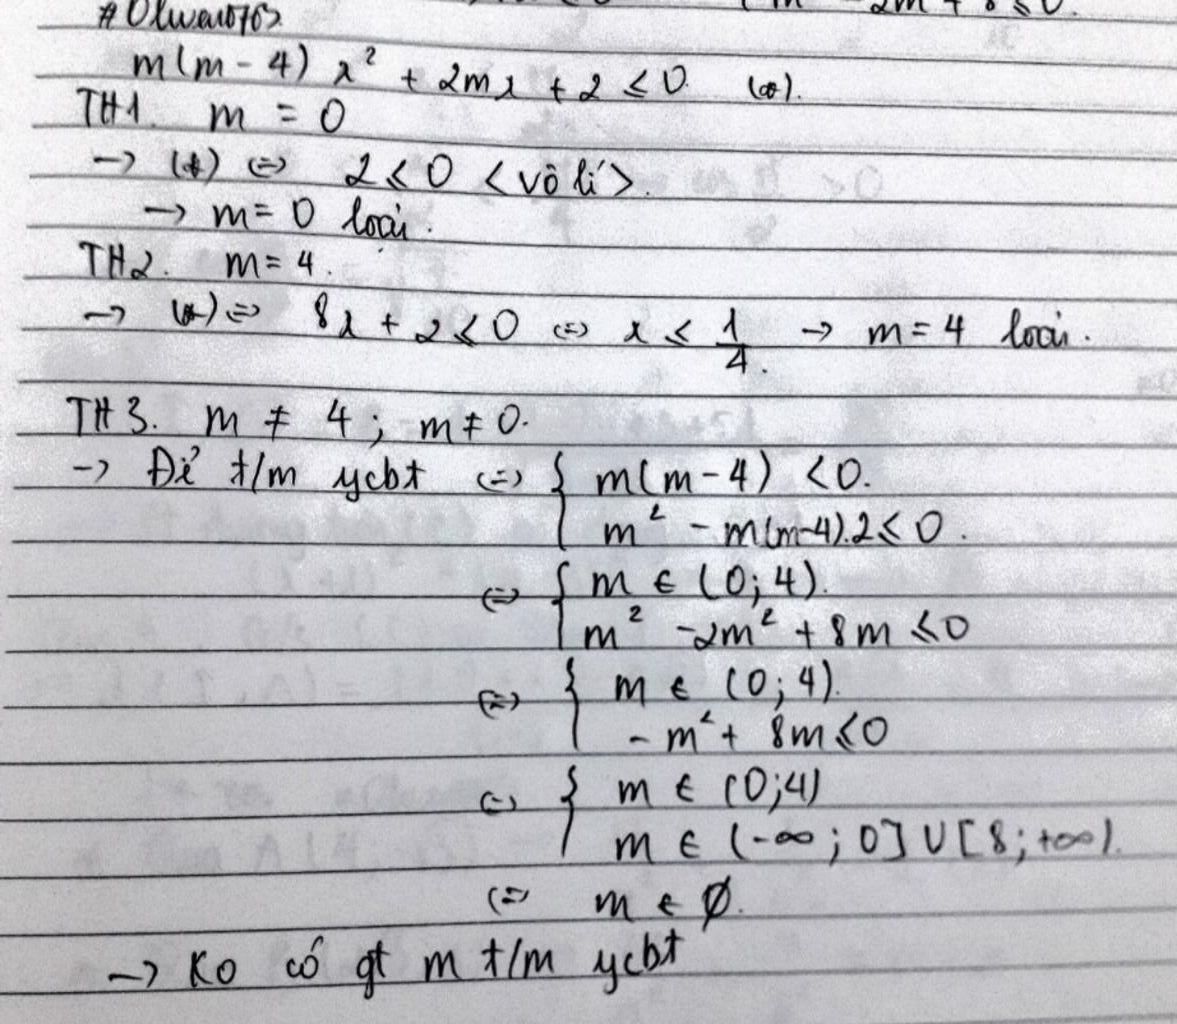 m - 2m + 8 ≤ 0.
m(m - 4) x² + 2mx + 2 ≤ 0 (*).
TH1. m = 0
→ (*) ⇔ 2 ≤ 0 <vô lí>.
→ m = 0 loại.
TH2. m = 4.
→ (*) ⇔ 8x + 2 ≤ 0 ⇔ x ≤ 1/4. → m = 4 loại.
TH3. m ≠ 4 ; m ≠ 0.
→ Để t/m ycbt ⇔ { m(m - 4) < 0.
m² - m(m-4).2 ≤ 0.
⇔ { m ∈ (0; 4).
m² - 2m² + 8m ≤ 0
⇔ { m ∈ (0; 4).
- m² + 8m ≤ 0
⇔ { m ∈ (0;4)
m ∈ (-∞; 0] ∪ [8; +∞).
⇔ m ∈ ∅.
→ Ko có gt m t/m ycbt